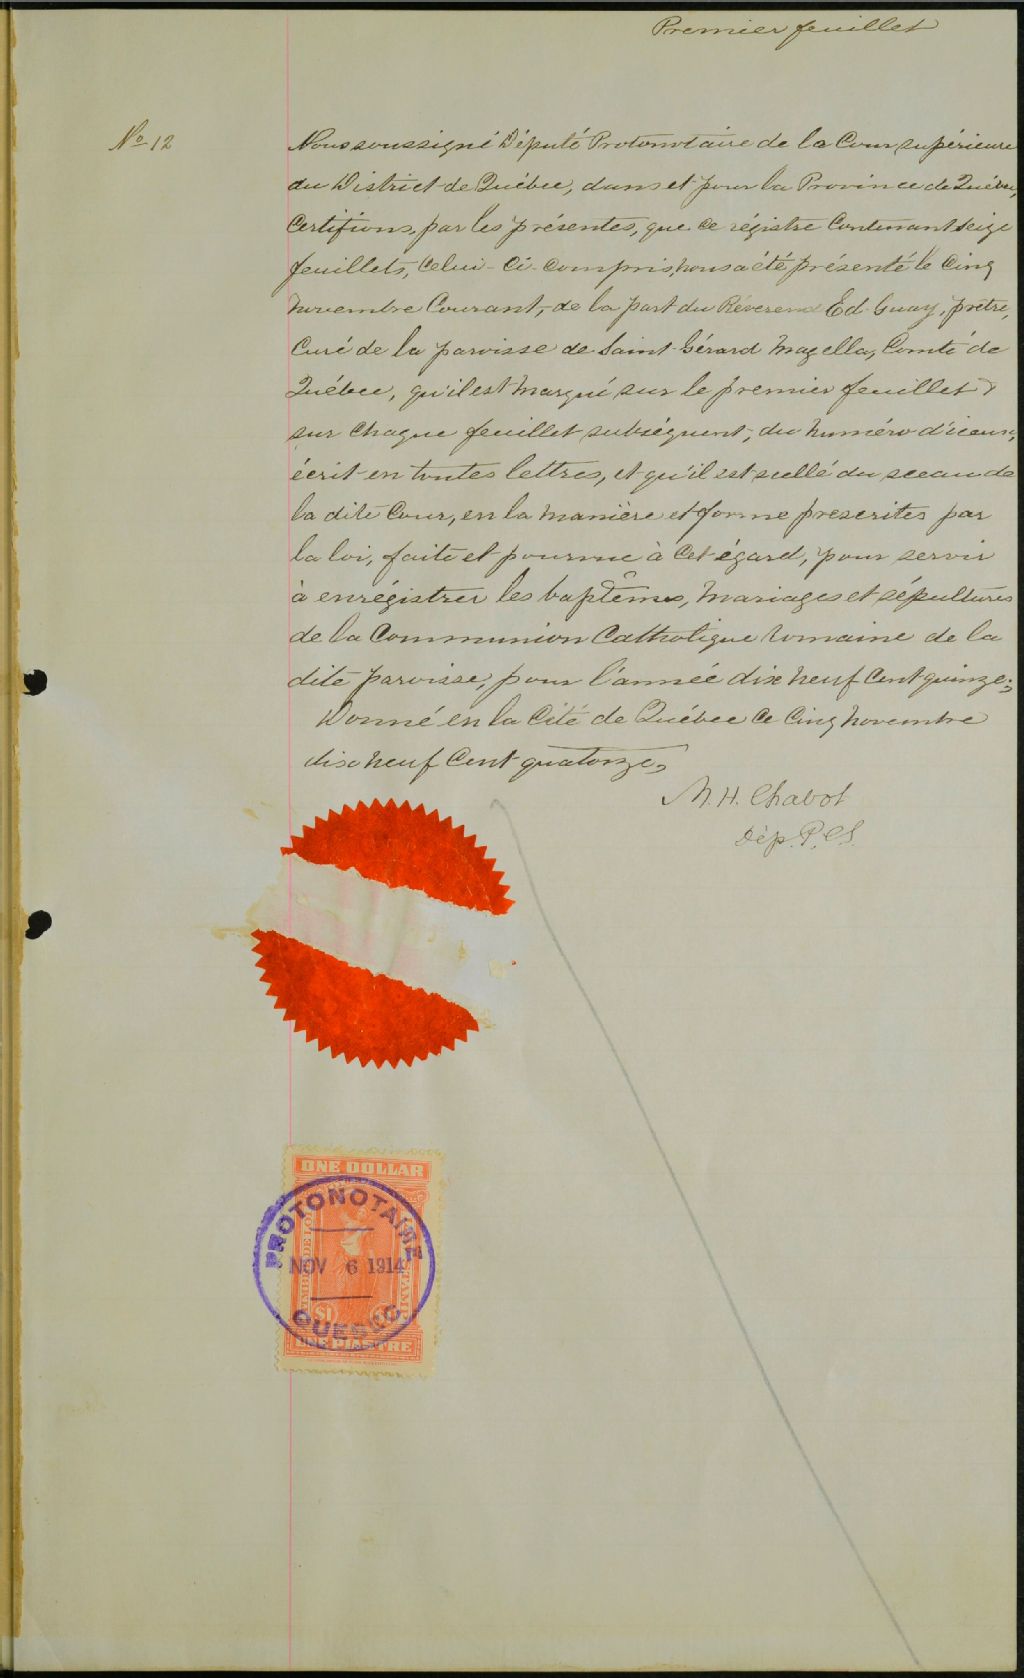 Premier feuillet
No 12
Nous soussigné Député Protonotaire de la Cour supérieure
du District de Québec, dans et pour la Province de Québec,
Certifions, par les présentes, que ce régistre Contenant seize
feuillets, Celui-Ci-Compris, nous a été présenté le Cinq
novembre Courant, de la part du Révérend Ed. Guay, prêtre,
Curé de la paroisse de Saint Gérard Magella, Comté de
Québec, qu'il est marqué sur le premier feuillet &
sur chaque feuillet subséquent, du numéro d'iceux,
écrit en toutes lettres, et qu'il est scellé du sceau de
la dite Cour, en la manière et forme prescrites par
la loi, faite et pourvue à Cet égard, pour servir
à enrégistrer les baptêmes, Mariages et sépultures
de la Communion Catholique Romaine de la
dite paroisse, pour l'année dix neuf Cent quinze;
Donné en la Cité de Québec Ce Cinq novembre
dix neuf Cent quatorze,
M. H. Chabot
Dép. P. C. S.
ONE DOLLAR
PROTONOTAIRE
NOV 6 1914
QUEBEC
$1
STAMP
ONE PIASTRE